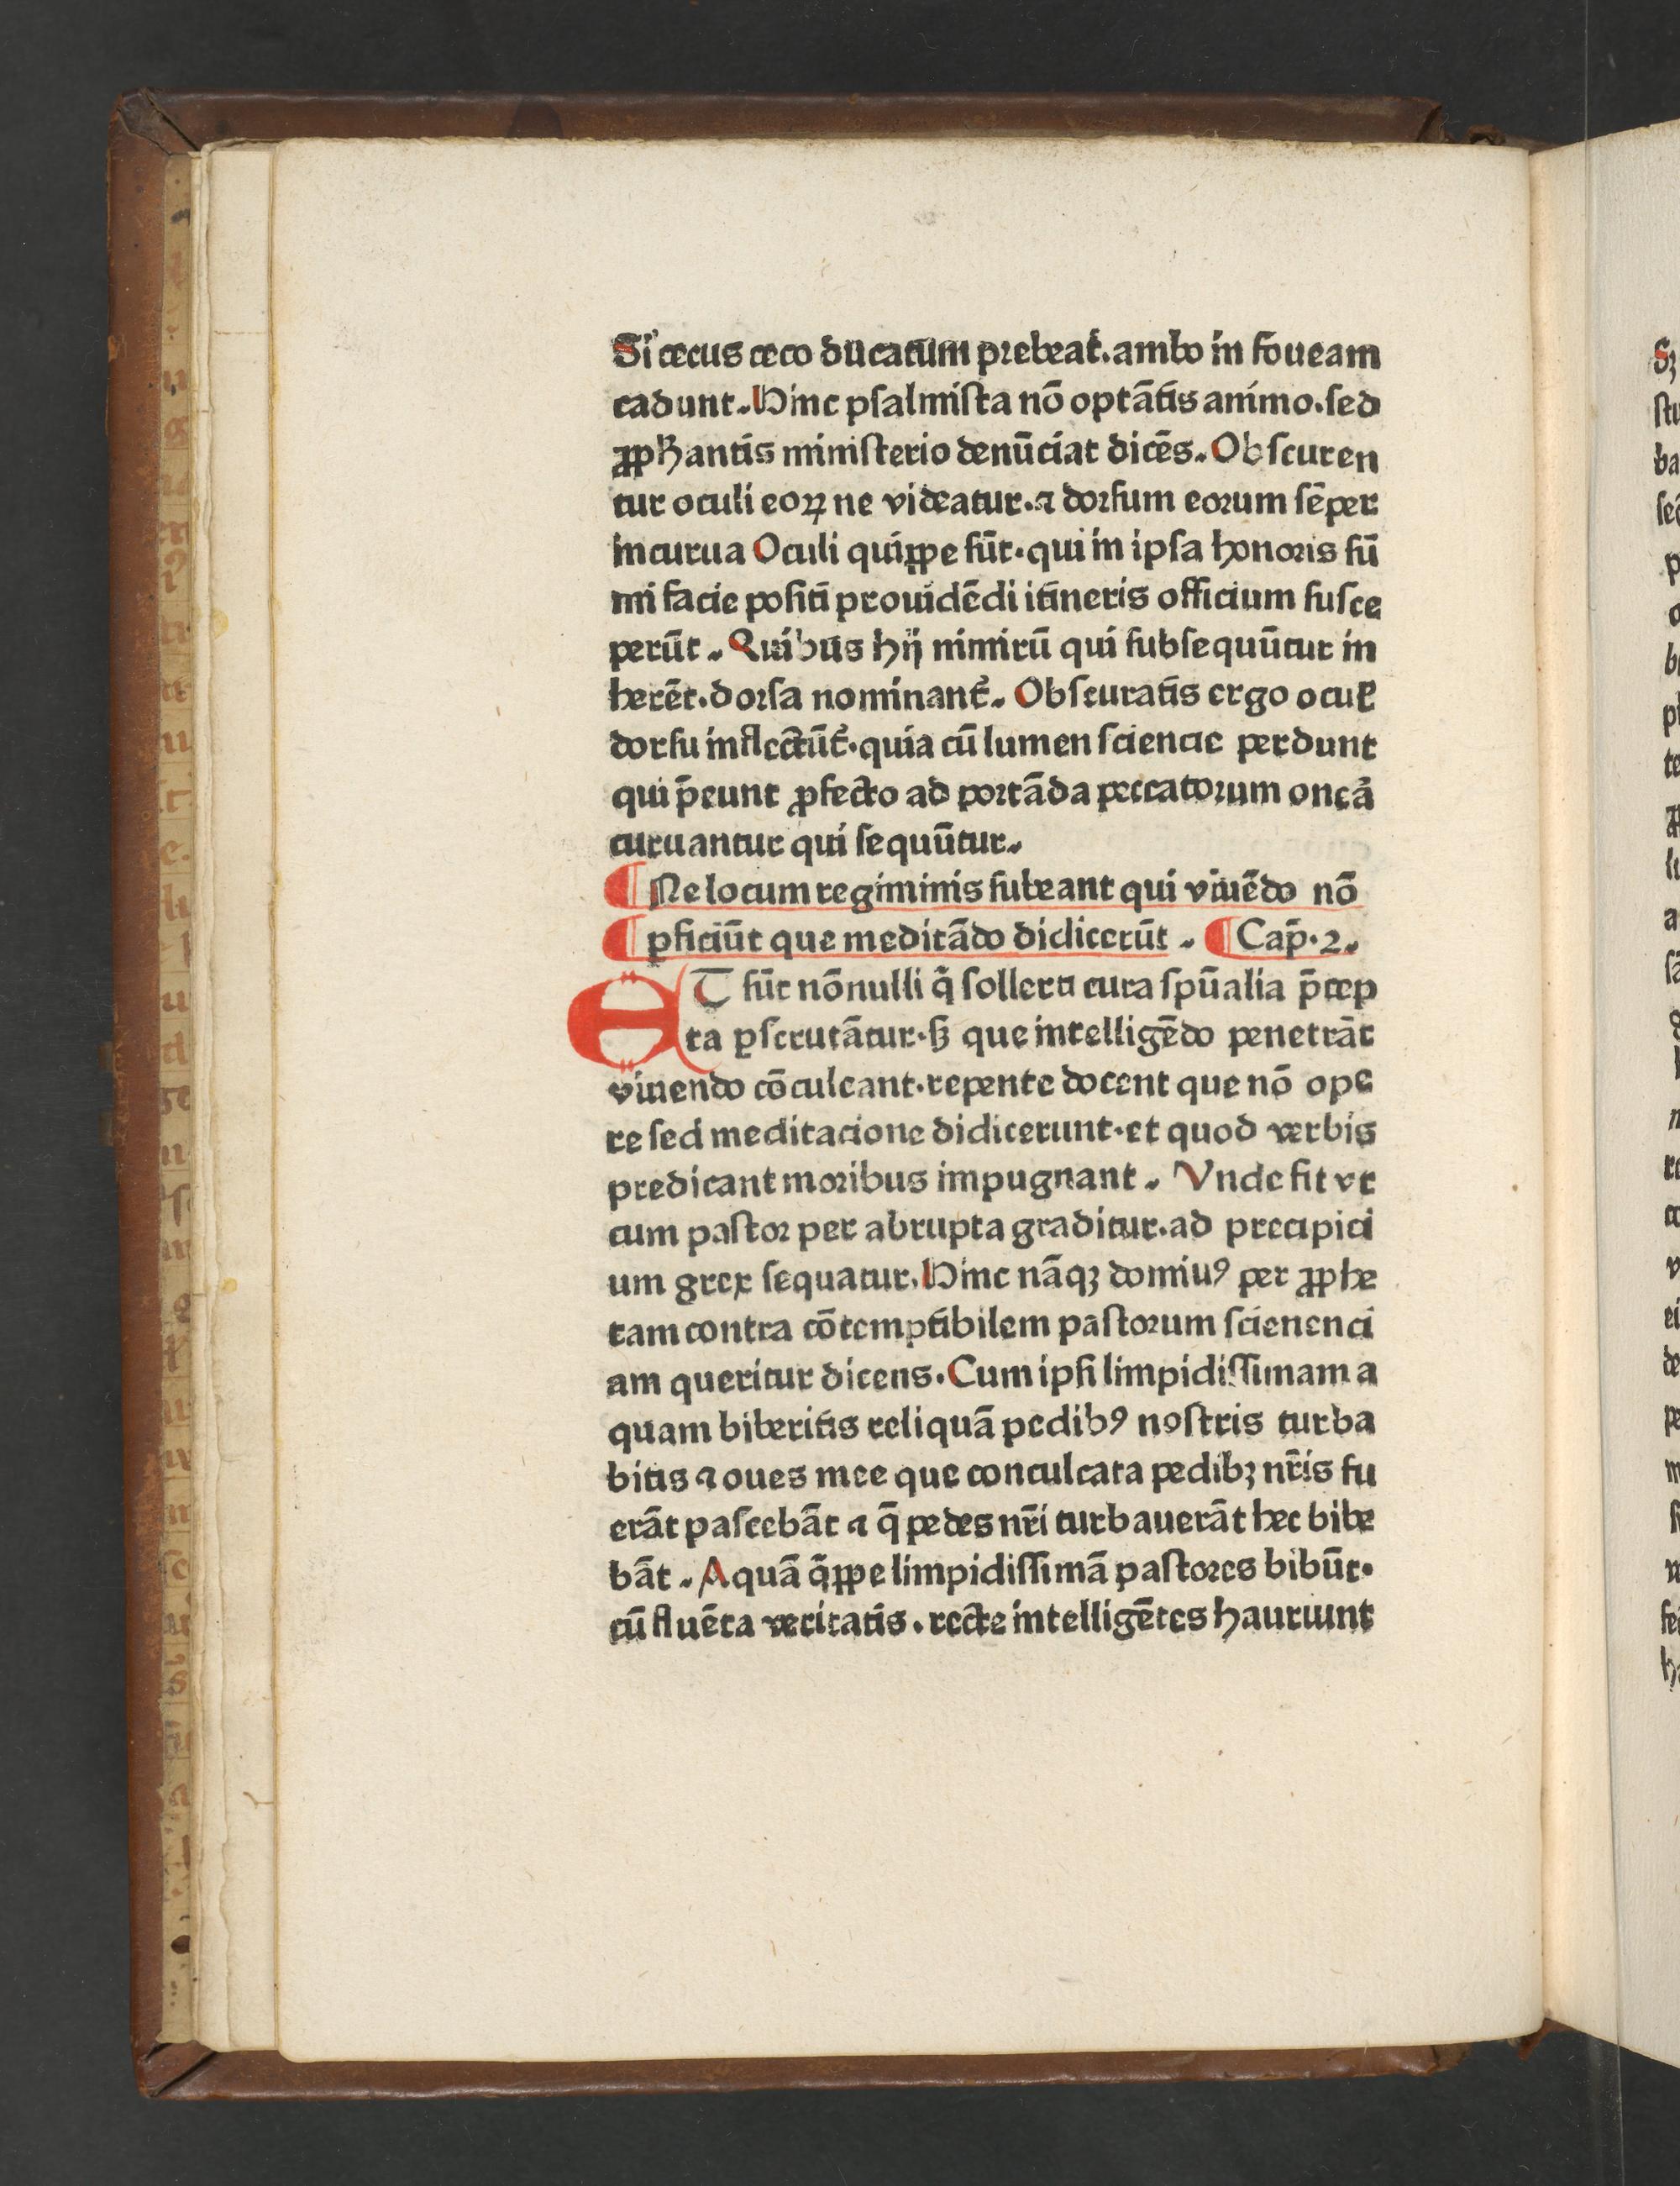 Si cecus ceco ducatum prebeat᷑.ambo in foueam
cadunt.Hinc psalmista nō optātis animo.sed
ꝓpħantis ministerio denūciat dicēs.Obscuren
tur oculi eoꝝ ne videatur.⁊ dorsum eorum sēper
incurua Oculi quiꝓpe sūt.qui in ipsa honoris sū
mi facie positi prouidēdi itineris officium susce
perūt.Quibus hij nimirū qui subsequūtur in
herēt.dorsa nominant᷑.Obscuratis ergo oculꝭ
dorsu inflectūt᷑.quia cū lumen sciencie perdunt
qui p̄eunt ꝓfecto ad portāda peccatorum onea᷑
curuantur qui sequūtur.
¶ Ne locum regiminis subeant qui viuēdo nō
¶ ꝑficiūt que meditādo didicerūt. ¶ Cap̄.2.
ET sūt nōnulli q̄ sollerti cura spūalia p̄cep
ta ꝑscrutātur.sꝫ que intelligēdo penetrāt
viuendo cōculcant.repente docent que nō ope
re sed meditacione didicerunt.et quod verbis
predicant moribus impugnant. Vnde fit vt
cum pastor per abrupta graditur.ad precipici
um grex sequatur.Hinc nāqꝫ domiuꝰ per ꝓphe
tam contra cōtemptibilem pastorum scienenci
am queritur dicens.Cum ipsi limpidissimam a
quam biberitis reliquā pedibꝰ nostris turba
bitis ⁊ oues mee que conculcata pedibꝫ nr̄is fu
erāt pascebāt ⁊ q̄ pedes nr̄i turbauerāt hec bibe
bāt.Aquā q̄ꝓpe limpidissimā pastores bibūt.
cū fluēta veritatis.recte intelligētes hauriunt